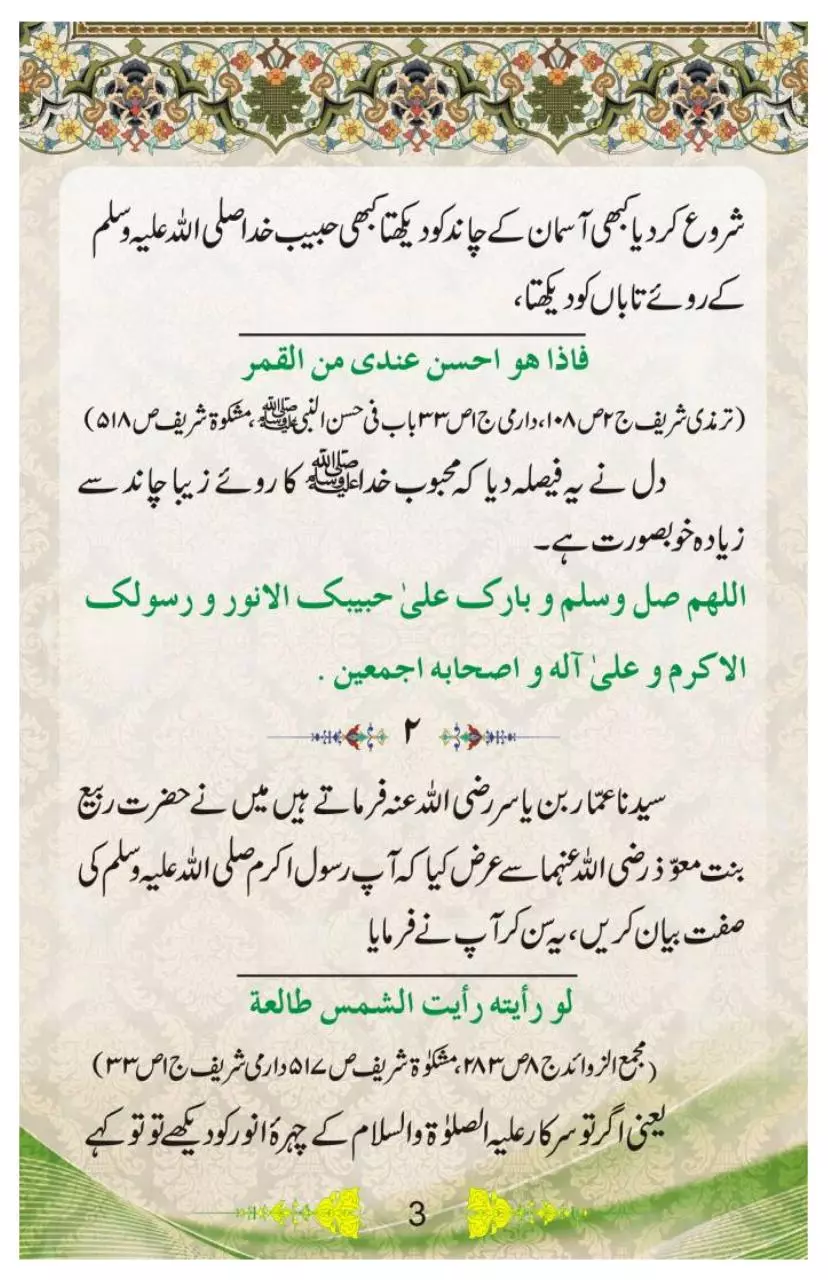 شروع کر دیا کبھی آسمان کے چاند کو دیکھتا کبھی حبیب خدا صلی اللہ علیہ وسلم
کے روئے تاباں کو دیکھتا،
فاذا هو احسن عندی من القمر
(ترمذی شریف ج ۲ ص ۱۰۸، دارمی ج ا ص ۳۳ باب فی حسن النبی ﷺ، مشکوۃ شریف ص ۵۱۸)
دل نے یہ فیصلہ دیا کہ محبوب خدا ﷺ کا روئے زیبا چاند سے
زیادہ خوبصورت ہے۔
اللهم صل وسلم و بارک علیٰ حبیبک الانور و رسولک
الاکرم و علیٰ آله و اصحابه اجمعین .
۲
سیدنا عمّار بن یاسر رضی اللہ عنہ فرماتے ہیں میں نے حضرت ربیع
بنت معوّذ رضی اللہ عنہما سے عرض کیا کہ آپ رسول اکرم صلی اللہ علیہ وسلم کی
صفت بیان کریں، یہ سن کر آپ نے فرمایا
لو رأیته رأیت الشمس طالعة
(مجمع الزوائد ج ۸ ص ۲۸۳، مشکوٰۃ شریف ص ۵۱۷ دارمی شریف ج ا ص ۳۳)
یعنی اگر تو سرکار علیہ الصلوٰۃ والسلام کے چہرۂ انور کو دیکھے تو تو کہے
3